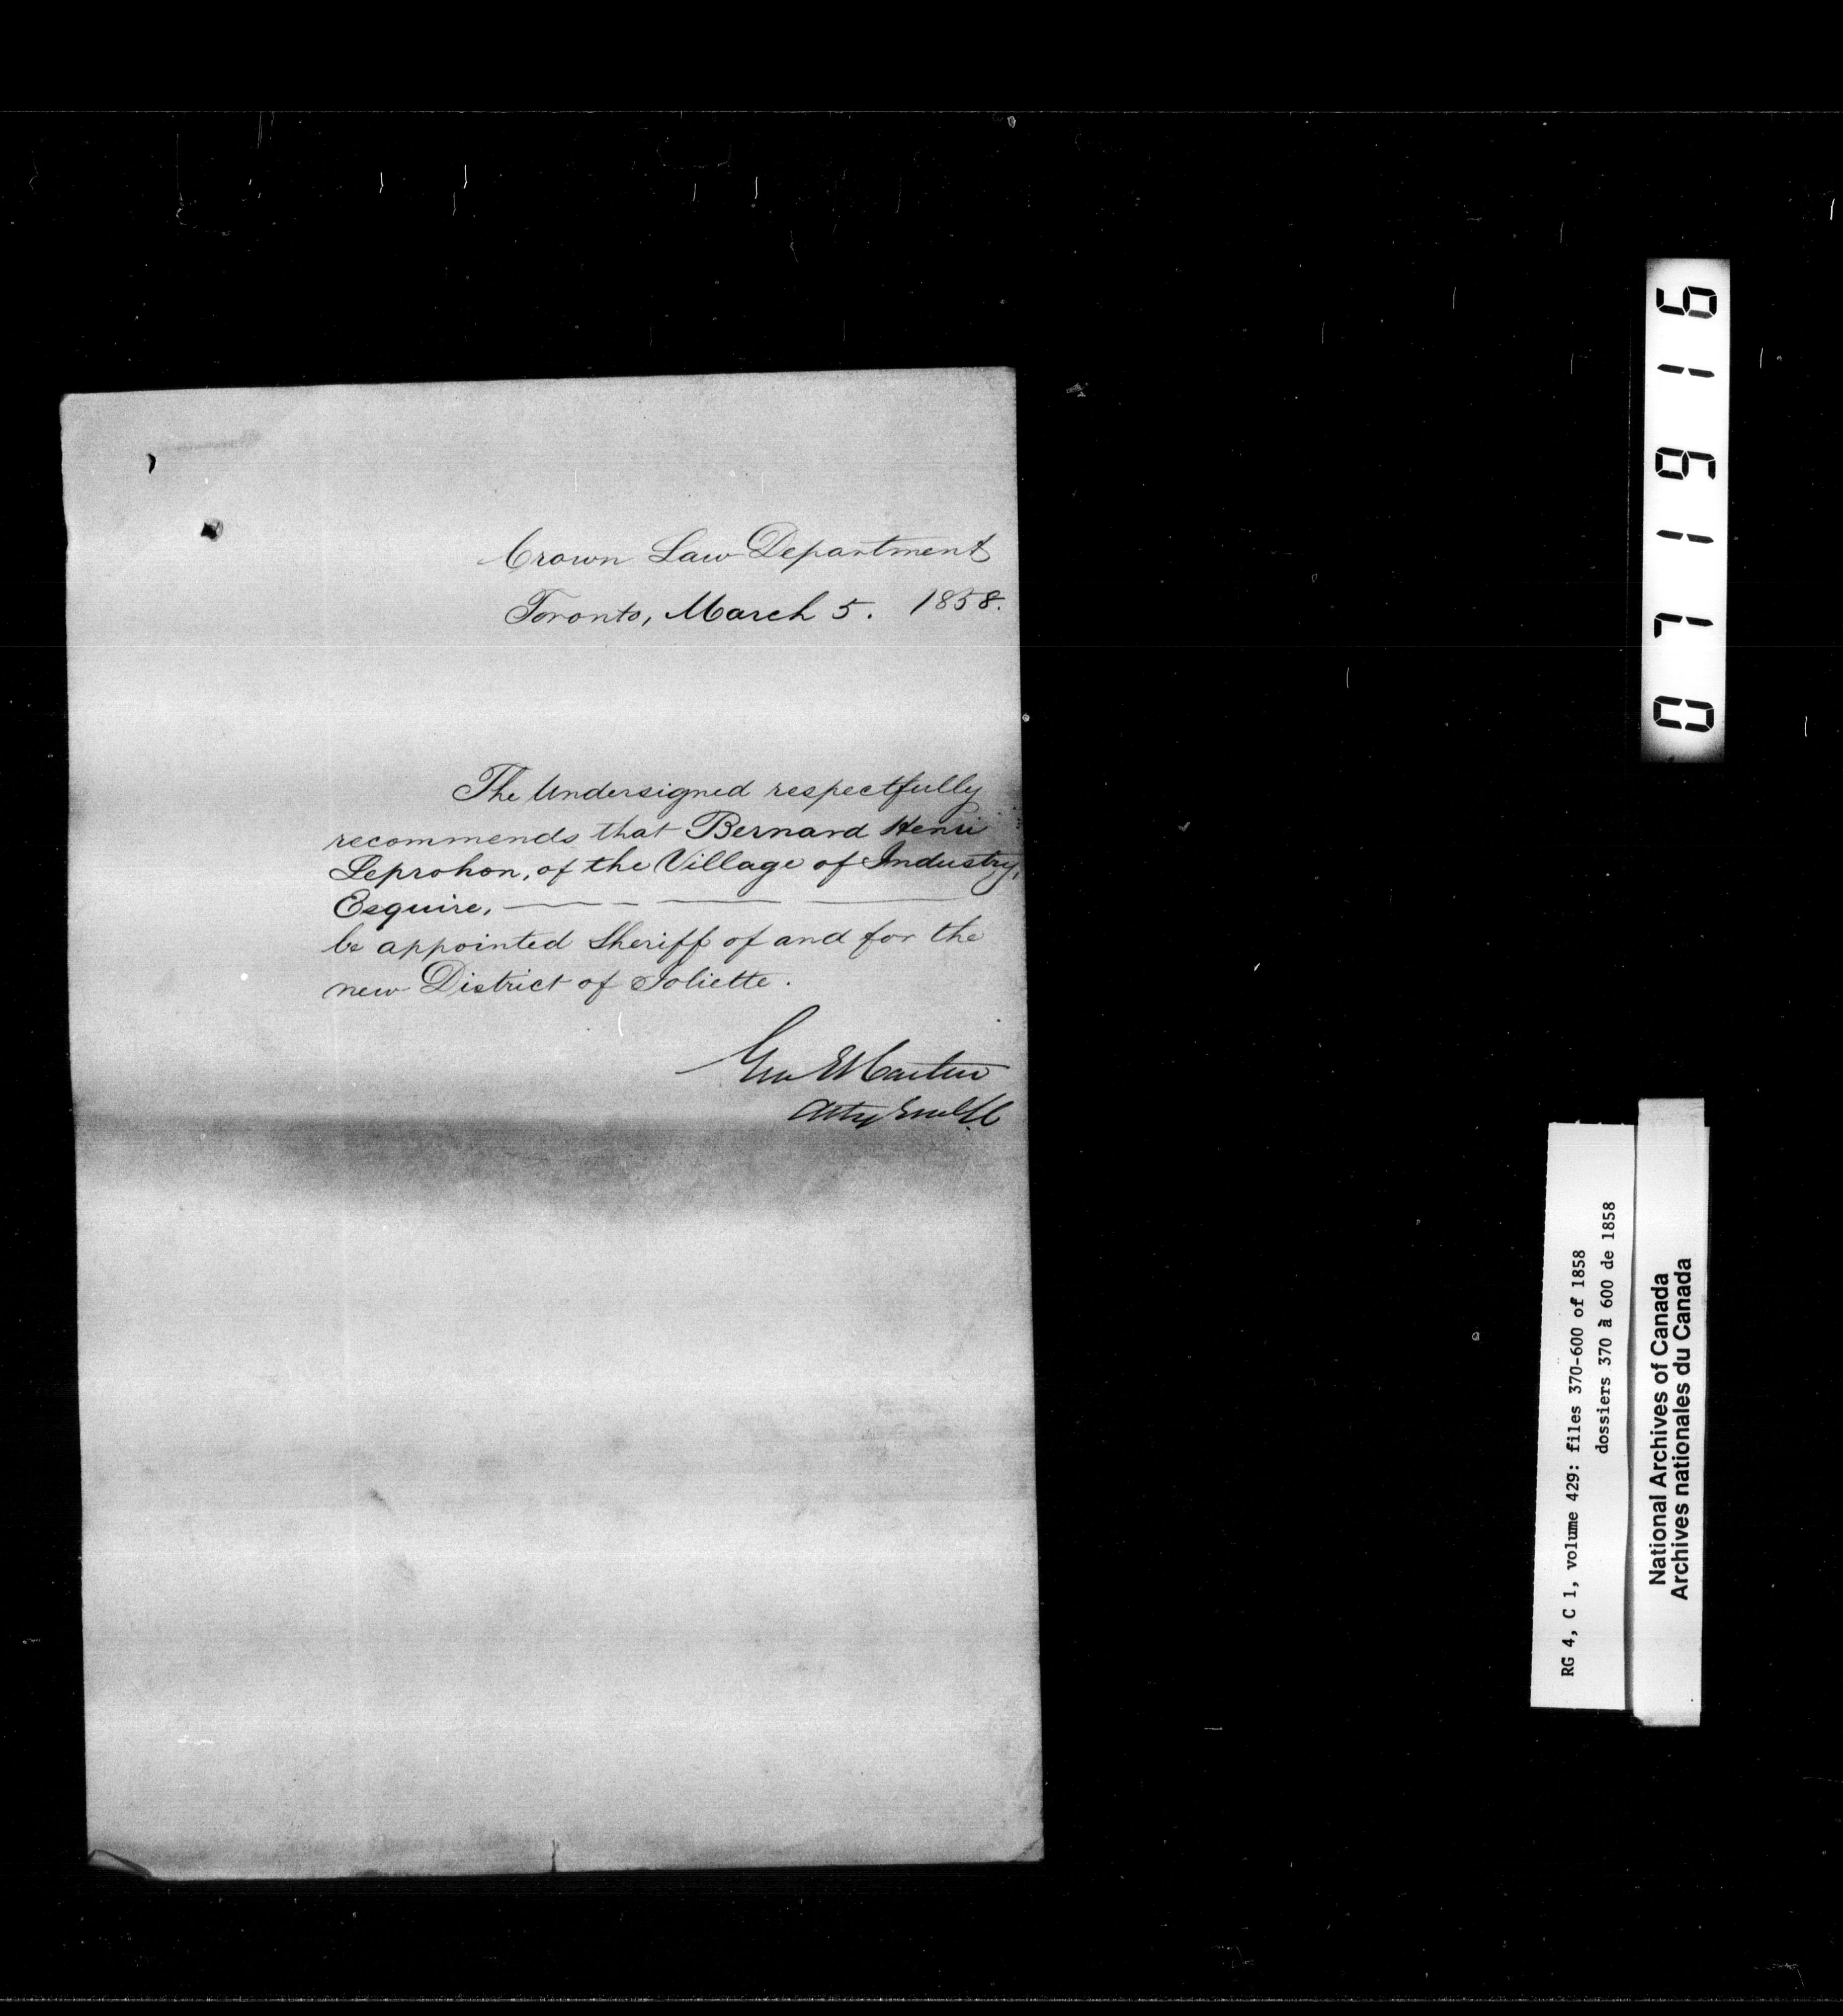 Crown Law Department
Toronto, March 5. 1858.
The Undersigned respectfully
recommends that Bernard Henri
Leprohon, of the Village of Industry,
Esquire,
be appointed Sheriff of and for the
new District of Joliette.
Geo E Cartier
Atty Genl LC
071916
RG 4, C 1, volume 429: files 370-600 of 1858
dossiers 370 à 600 de 1858
National Archives of Canada
Archives nationales du Canada